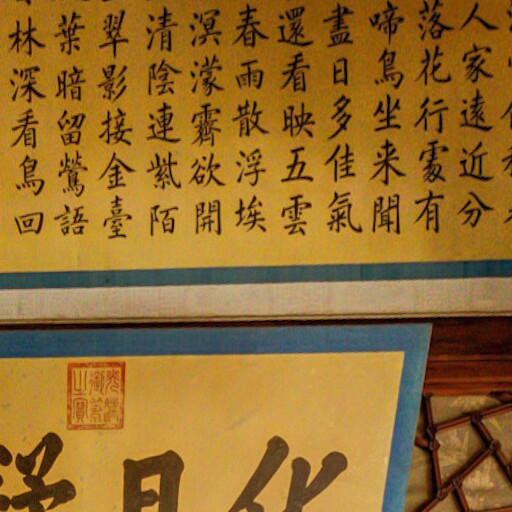 人家遠近分
落花行處有
啼鳥坐来聞
盡日多佳氣
還看映五雲
春雨散浮埃
溟濛霽欲開
清陰連紫陌
翠影接金臺
葉暗留鶯語
林深看鳥回
光緒御筆之寶
化日